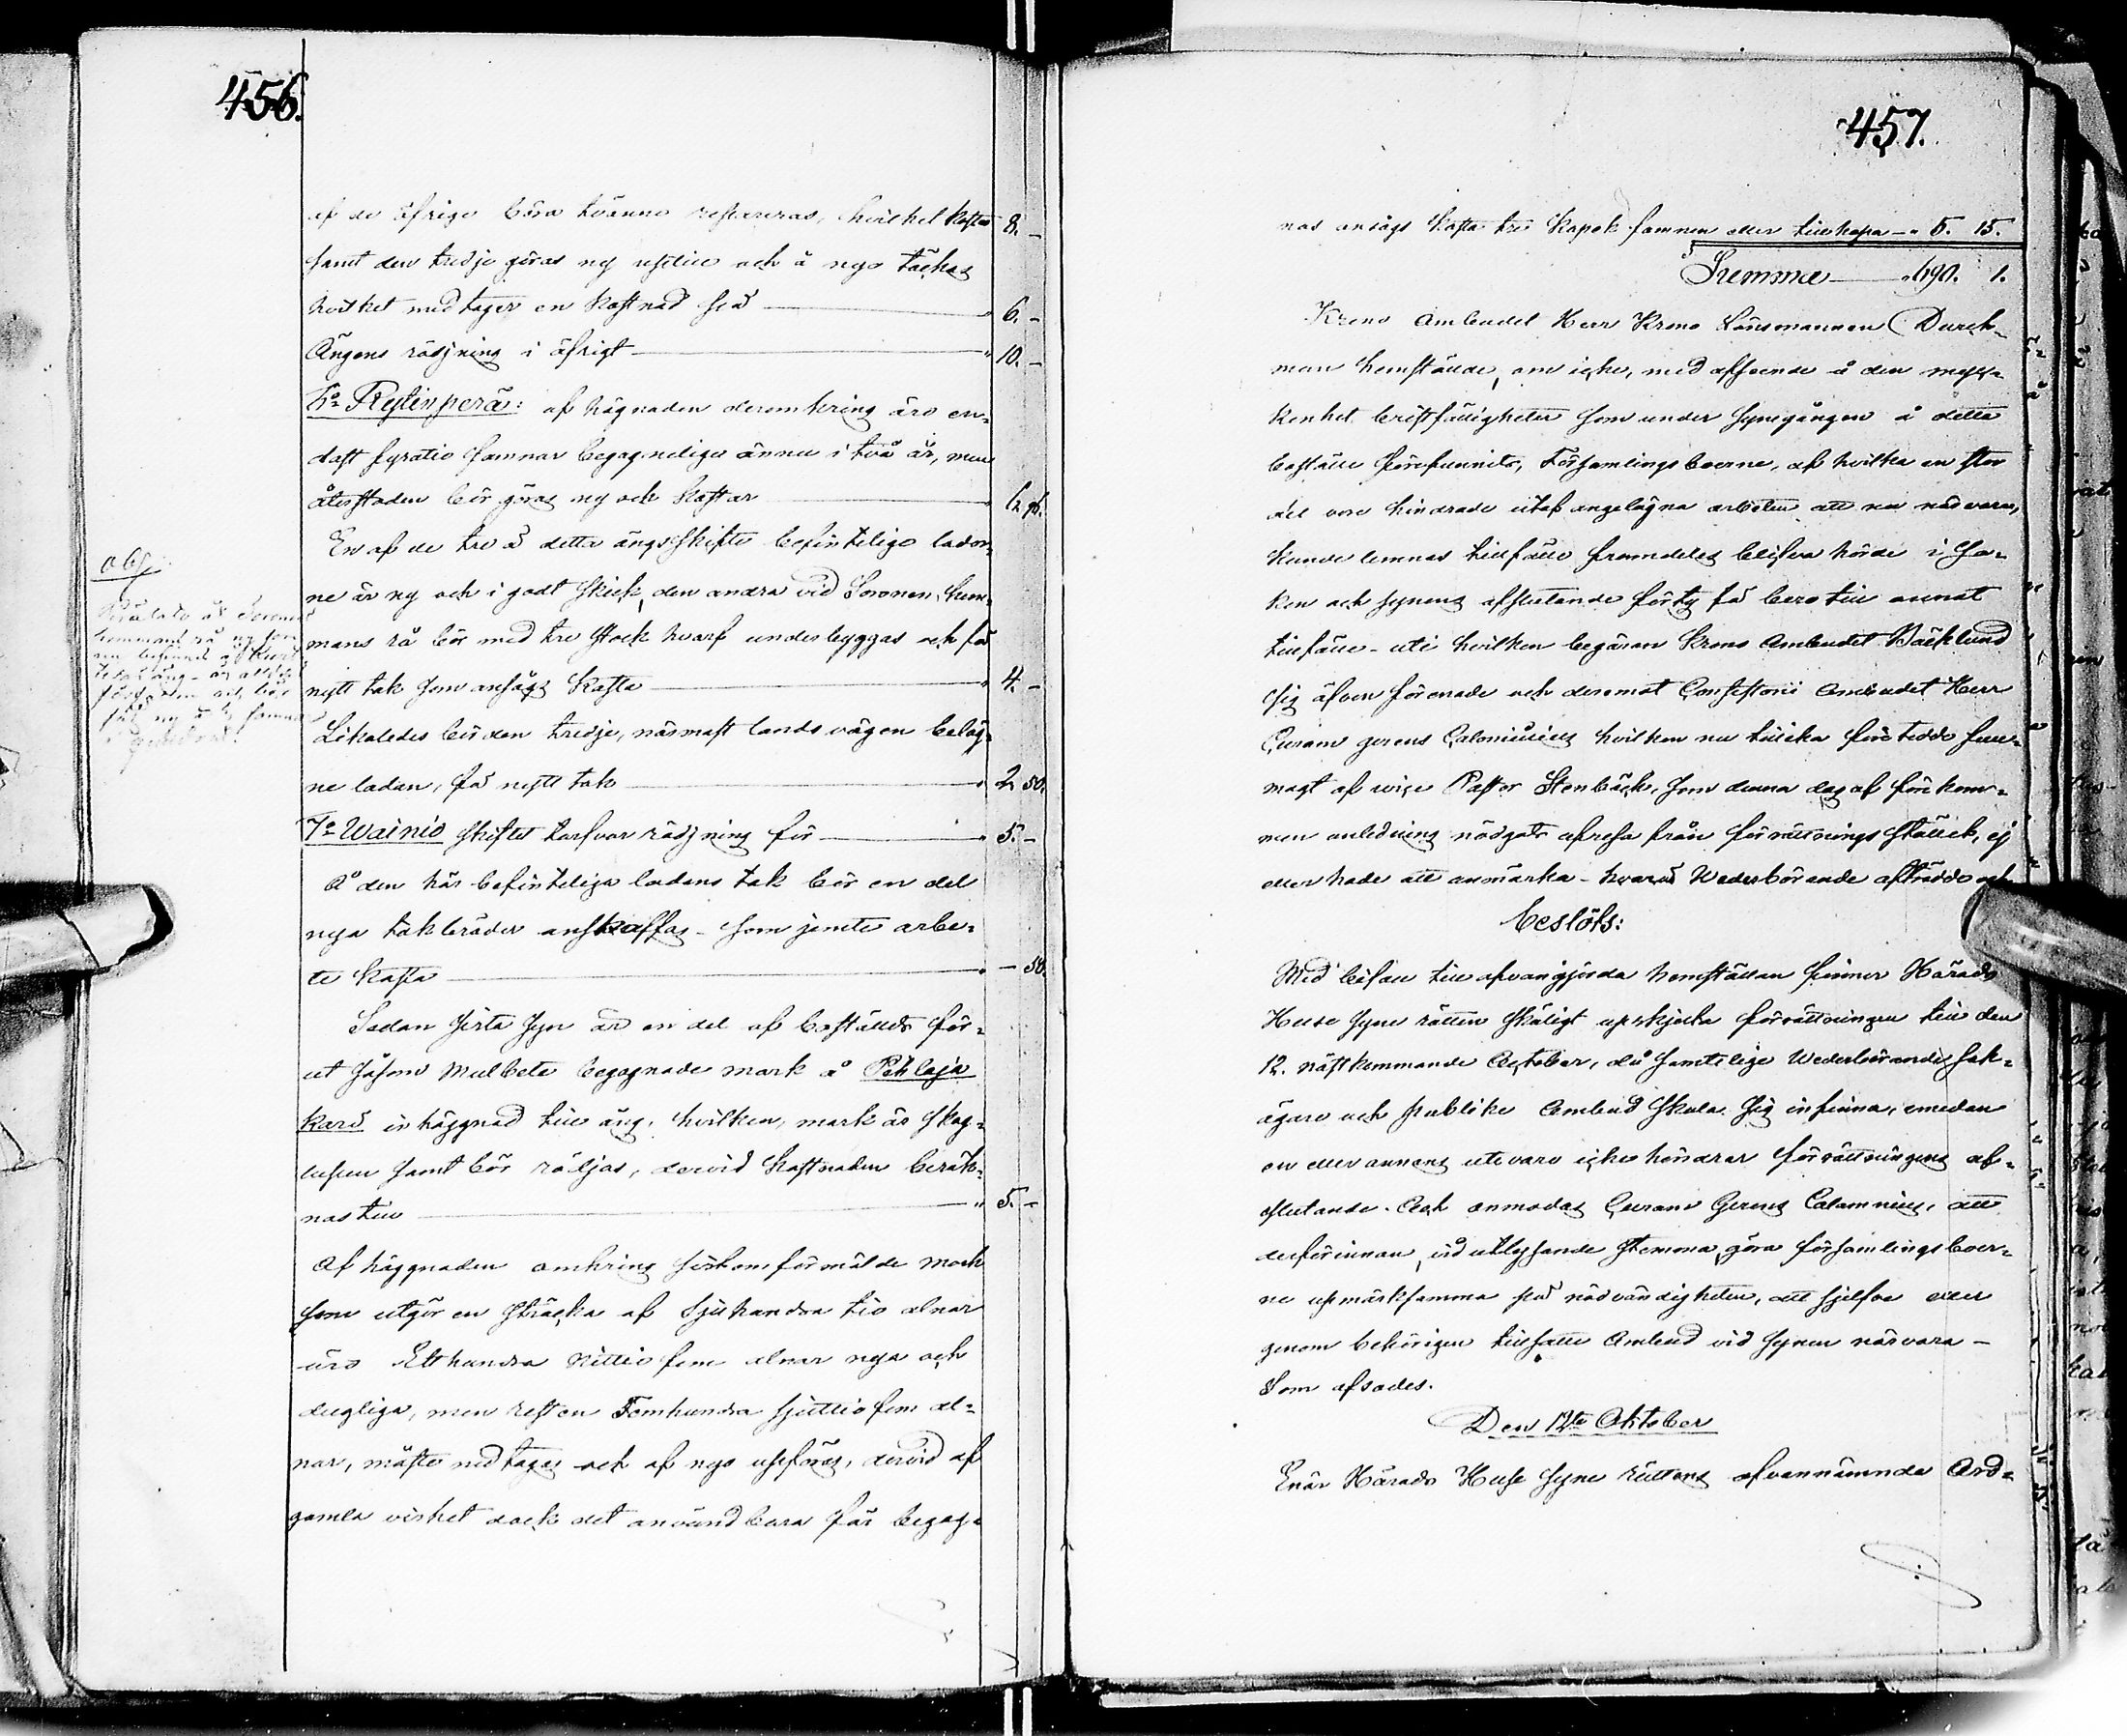 456.
af de öfrige böra tvänne repareras, hvilket kostar 8. -
samt den tredje göras ny uptill och å nyo täckas
hvilket medtager en kostnad på 6. -
Ängens rödjning i öfrigt 10. -
Reslinperä: af hägnaden deromkring äro en-
dast fyratio famnar begagneliga ännu i två år, men
återstoden bör göras ny och kostar
En af de tre å detta ängsskifte befinteliga lador-
ne är ny och i godt skick, den andra vid Soronen, hem-
mans rå bör med tre stock hvarf underbyggas och få
nytt tak som ansågs kosta 4. -
Likaledes bör den tredje, närmast landsvägen beläg-
ne ladan, få nytt tak 2. 50.
7o Wainio skiftet tarfvar rödjning för 5. -
Å den här befinteliga ladans tak bör en del
nya takbräder anskaffas - som jemte arbe-
te kosta - 50.
Sedan sista syn är en del af boställets för-
ut såsom mulbete begagnade mark å Pehlaja
kari inhägnad till äng, hvilken mark är skog-
lupen samt bör rödjas, dervid kostnaden beräk-
nas till 5. -
Af hägnaden omkring sistomförmälde mark
som utgör en sträcka af sjuhundra tio alnar
äro Etthundra Nittio fem alnar nya och
dugliga, men resten Femhundra sjuttio fem al-
nar, måste nedtagas och af nyo uppföras, dervid af
gamla virket dock det användbara får begag-
obs.
457.
nas ansågs kosta tre kopek famnen eller tillhopa - 5. 15.
Summa 190. 1.
Krono Ombudet Herr Krono Länsmannen Durch-
man hemställde, om icke, med afseende å den myc-
kenhet bristfälligheter som under synegången å detta
boställe förefunnits, Församlingsboerne, af hvilka en stor
del vore hindrade utaf angelägna arbeten att nu närvara,
kunde lemnas tillfälle framdeles blifva hörde i sa-
ken och synens afslutande förty få bero till annat
tillfälle - uti hvilken begäran Krono Ombudet Bäcklund
sig äfven förenade och deremot Consistorii Ombudet Herr
Curam gerens Calamnius hvilken nu tillika företedde full-
magt af vice Pastor Stenbäck, som denna dag af förekom-
men anledning nödgats afresa från förrättnings stället, ej
eller hade att anmärka - hvarpå Wederbörande afträdde och
beslöts:
Med bifall till ofvangjorda hemställan finner Härads
Huse syne rätten skäligt upskjuta förrättningen till den
12. nästkommande October, då samtelige Wederbörande sak-
ägare och publike Ombud skola sig infinna, emedan
en eller annans utevaro icke hindrar förrättningens af-
slutande. Och anmodas Curam Gerens Calamnius, att
desförinnan, vid utlysande stemma, göra församlingsboer-
ne upmärksamma på nödvändigheten, att sjelfve eller
genom behörigen tillsatte Ombud vid synen närvara -
Som afsades.
Den 12te Oktober
Enär Härads Huse syne rättens ofvannämnda Ord-